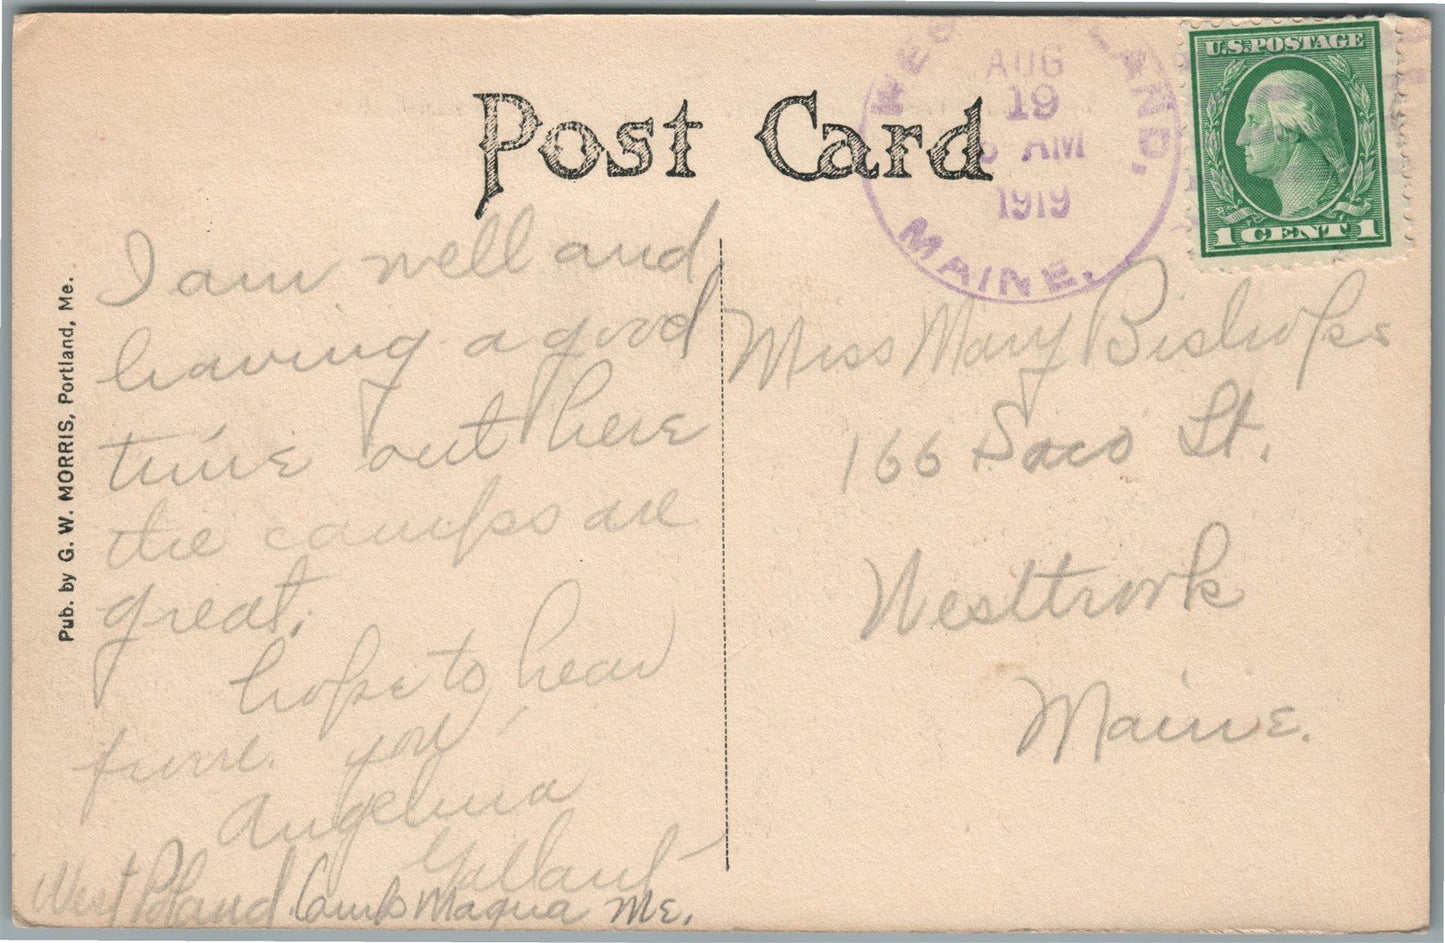 Post Card
WEST POLAND,
AUG
19
AM
1919
MAINE.
U.S. POSTAGE
1 CENT 1
Pub. by G. W. MORRIS, Portland, Me.
I am well and
having a good
time out here
the camps are
great.
hope to hear
from you
Angelina
Gallant
West Poland Camp Maqua Me.
Miss Mary Bishop
166 Saco St.
Westbrook
Maine.